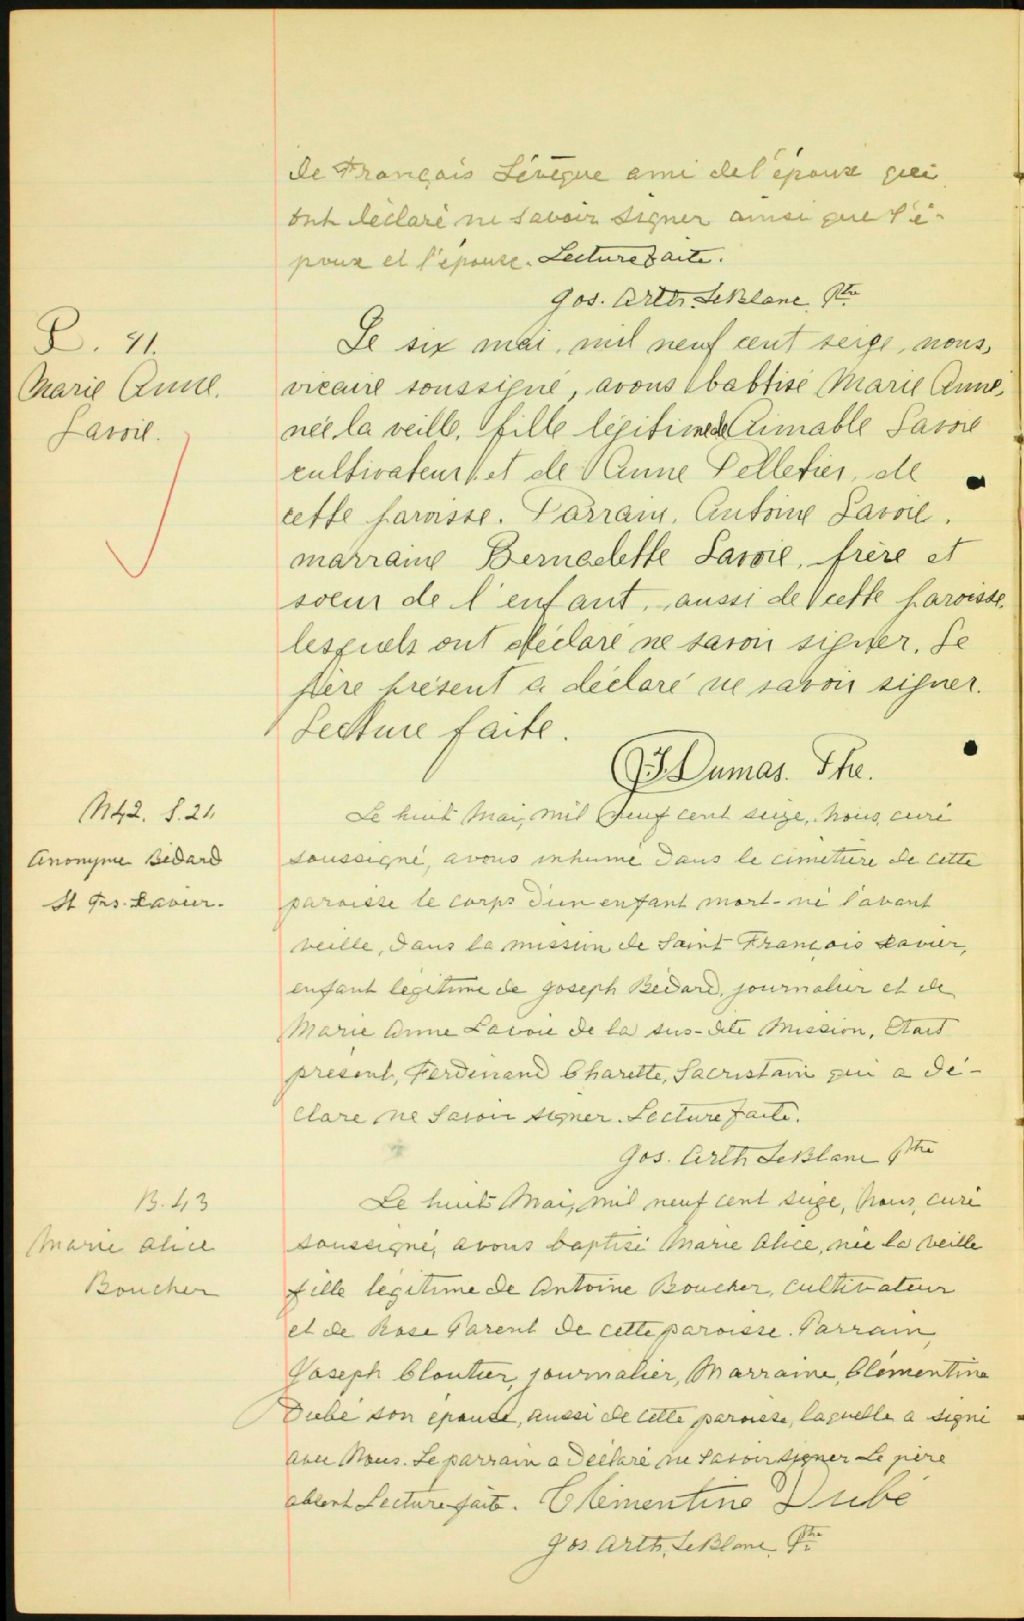 de François Lévêque ami de l'époux qui
ont déclaré ne savoir signer ainsi que l'é-
poux et l'épouse. Lecture faite.
Jos. Arth. LeBlanc Ptre
B. 41.
Marie Anne.
Savoie.
Le six mai, mil neuf cent seize, nous,
vicaire soussigné, avons babtisé Marie Anne,
née la veille, fille légitime de Aimable Savoie
cultivateur et de Anne Pelletier, de
cette paroisse. Parrain, Antoine Savoie,
marraine Bernadette Savoie, frère et
soeur de l'enfant, aussi de cette paroisse,
lesquels ont déclaré ne savoir signer. Le
père présent a déclaré ne savoir signer.
Lecture faite.
J. Dumas. Ptre.
M42. S.21
Anonyme Bédard
St Frs. Xavier.
Le huit Mai, mil neuf cent seize, Nous, curé
soussigné, avons inhumé dans le cimetière de cette
paroisse le corps d'un enfant mort-né l'avant
veille, dans la mission de Saint François Xavier,
enfant légitime de Joseph Bédard, journalier et de
Marie Anne Lavoie de la sus-dite Mission, Etait
présent, Ferdinand Charette, Sacristain qui a dé-
claré ne savoir signer. Lecture faite.
Jos. Arth LeBlanc Ptre
B. 43
Marie Alice
Boucher
Le huit Mai, mil neuf cent seize, Nous, curé
soussigné, avons baptisé Marie Alice, née la veille
fille légitime de Antoine Boucher, cultivateur
et de Rose Parent de cette paroisse. Parrain,
Joseph Cloutier, journalier, Marraine, Clémentine
Dubé son épouse, aussi de cette paroisse, laquelle a signé
avec Nous. Le parrain a déclaré ne savoir signer Le père
absent Lecture faite. Clémentine Dubé
Jos. Arth. LeBlanc Ptre